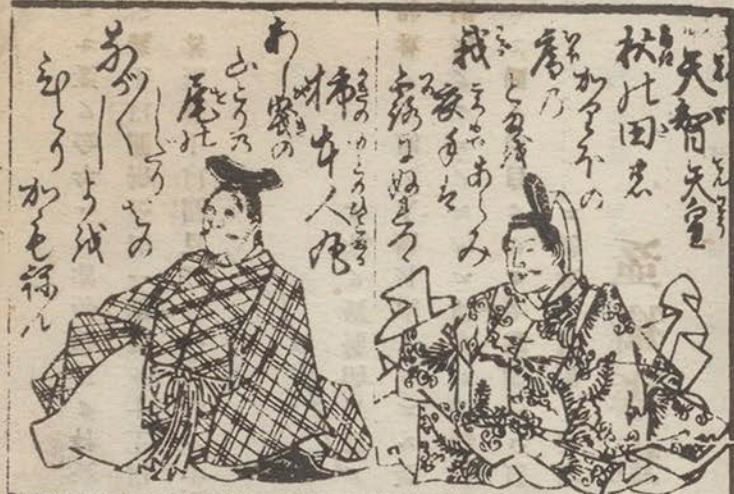 天智天皇
秋の田の
かりほの
庵乃
とま越
あらみ
我
衣手は
露にぬれつゝ
柿本人丸
あし曳の
山とりの
尾の
しだりをの
ながながし
よ越
ひとりかも祢ん